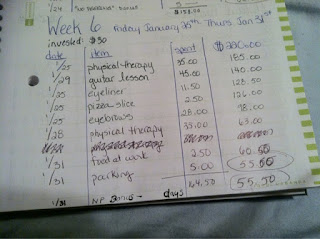 1/24
$138.00
Week 6 Friday January 25th Thurs Jan 31st
invested $30
date item spent $220.00
1/25 physical therapy 35.00 185.00
1/29 guitar lesson 45.00 140.00
1/25 eyeliner 11.50 128.50
1/25 pizza slice 2.50 126.00
1/25 eyebrows 28.00 98.00
1/28 physical therapy 35.00 63.00
1/31 food at work 2.50 60.50
1/31 parking 5.00 55.50
64.50 55.50
1/31 NP Bonus - days